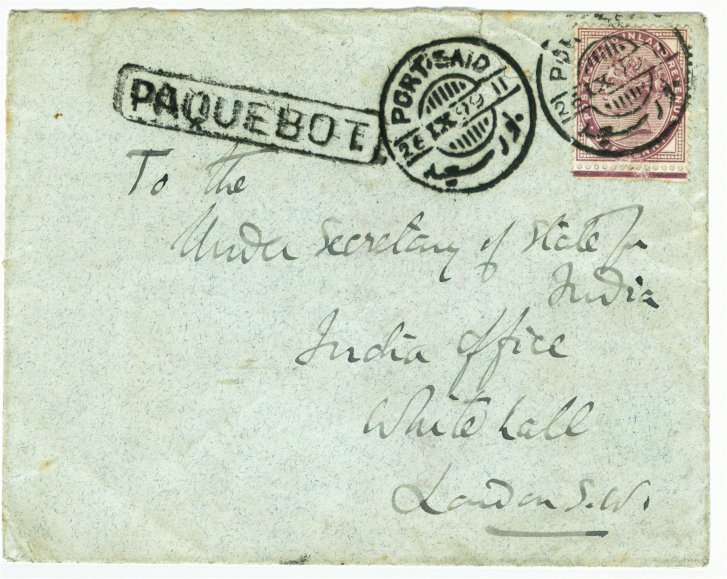 PAQUEBOT
PORT-SAID
26 IX 99 II
بور سعيد
INLAND REVENUE
To the
Under Secretary of State for
India
India Office
Whitehall
London S.W.